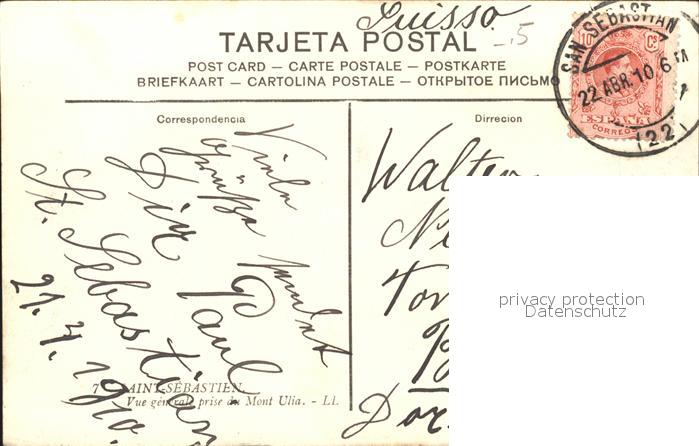 Suisse
TARJETA POSTAL
POST CARD — CARTE POSTALE — POSTKARTE
BRIEFKAART — CARTOLINA POSTALE — ОТКРЫТОЕ ПИСЬМО
15 Cs
SAN SEBASTIAN
22 ABR.10 6
(22)
ESPAÑA
CORREOS
Correspondencia
Direccion
Viele
Grüsse
Dir
Paul
St. Sebastian
21.4.1910.
SAINT-SÉBASTIEN.
Vue générale prise du Mont Ulia. - LL.
Walter
privacy protection
Datenschutz